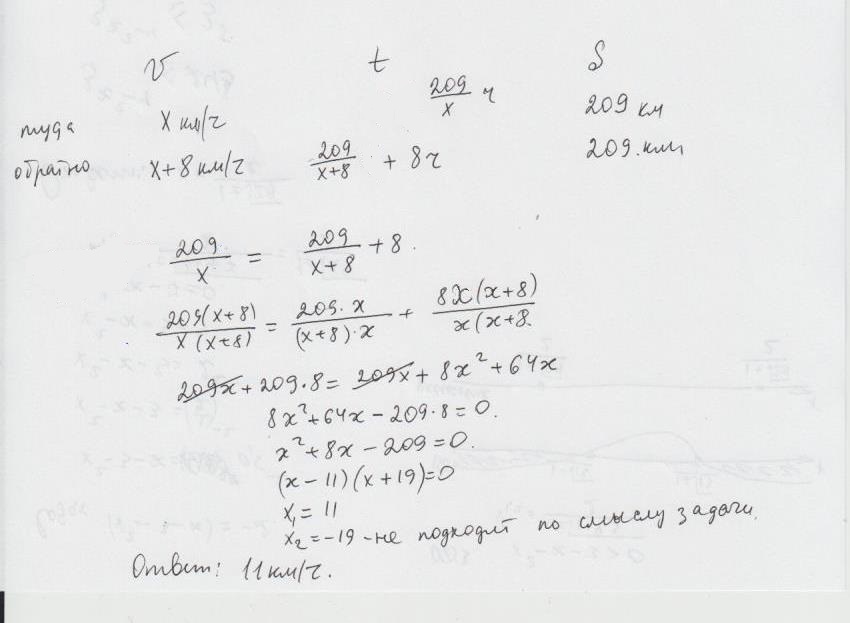 V t S
туда x км/ч 209/x ч 209 км
обратно x+8 км/ч 209/(x+8) + 8ч 209.км
209/x = 209/(x+8) + 8.
209(x+8)/(x(x+8)) = 209·x/((x+8)·x) + 8x(x+8)/(x(x+8.
209x + 209·8 = 209x + 8x² + 64x
8x² + 64x − 209·8 = 0.
x² + 8x − 209 = 0.
(x − 11)(x + 19) = 0
x₁ = 11
x₂ = −19 - не подходит по смыслу задачи.
Ответ: 11 км/ч.